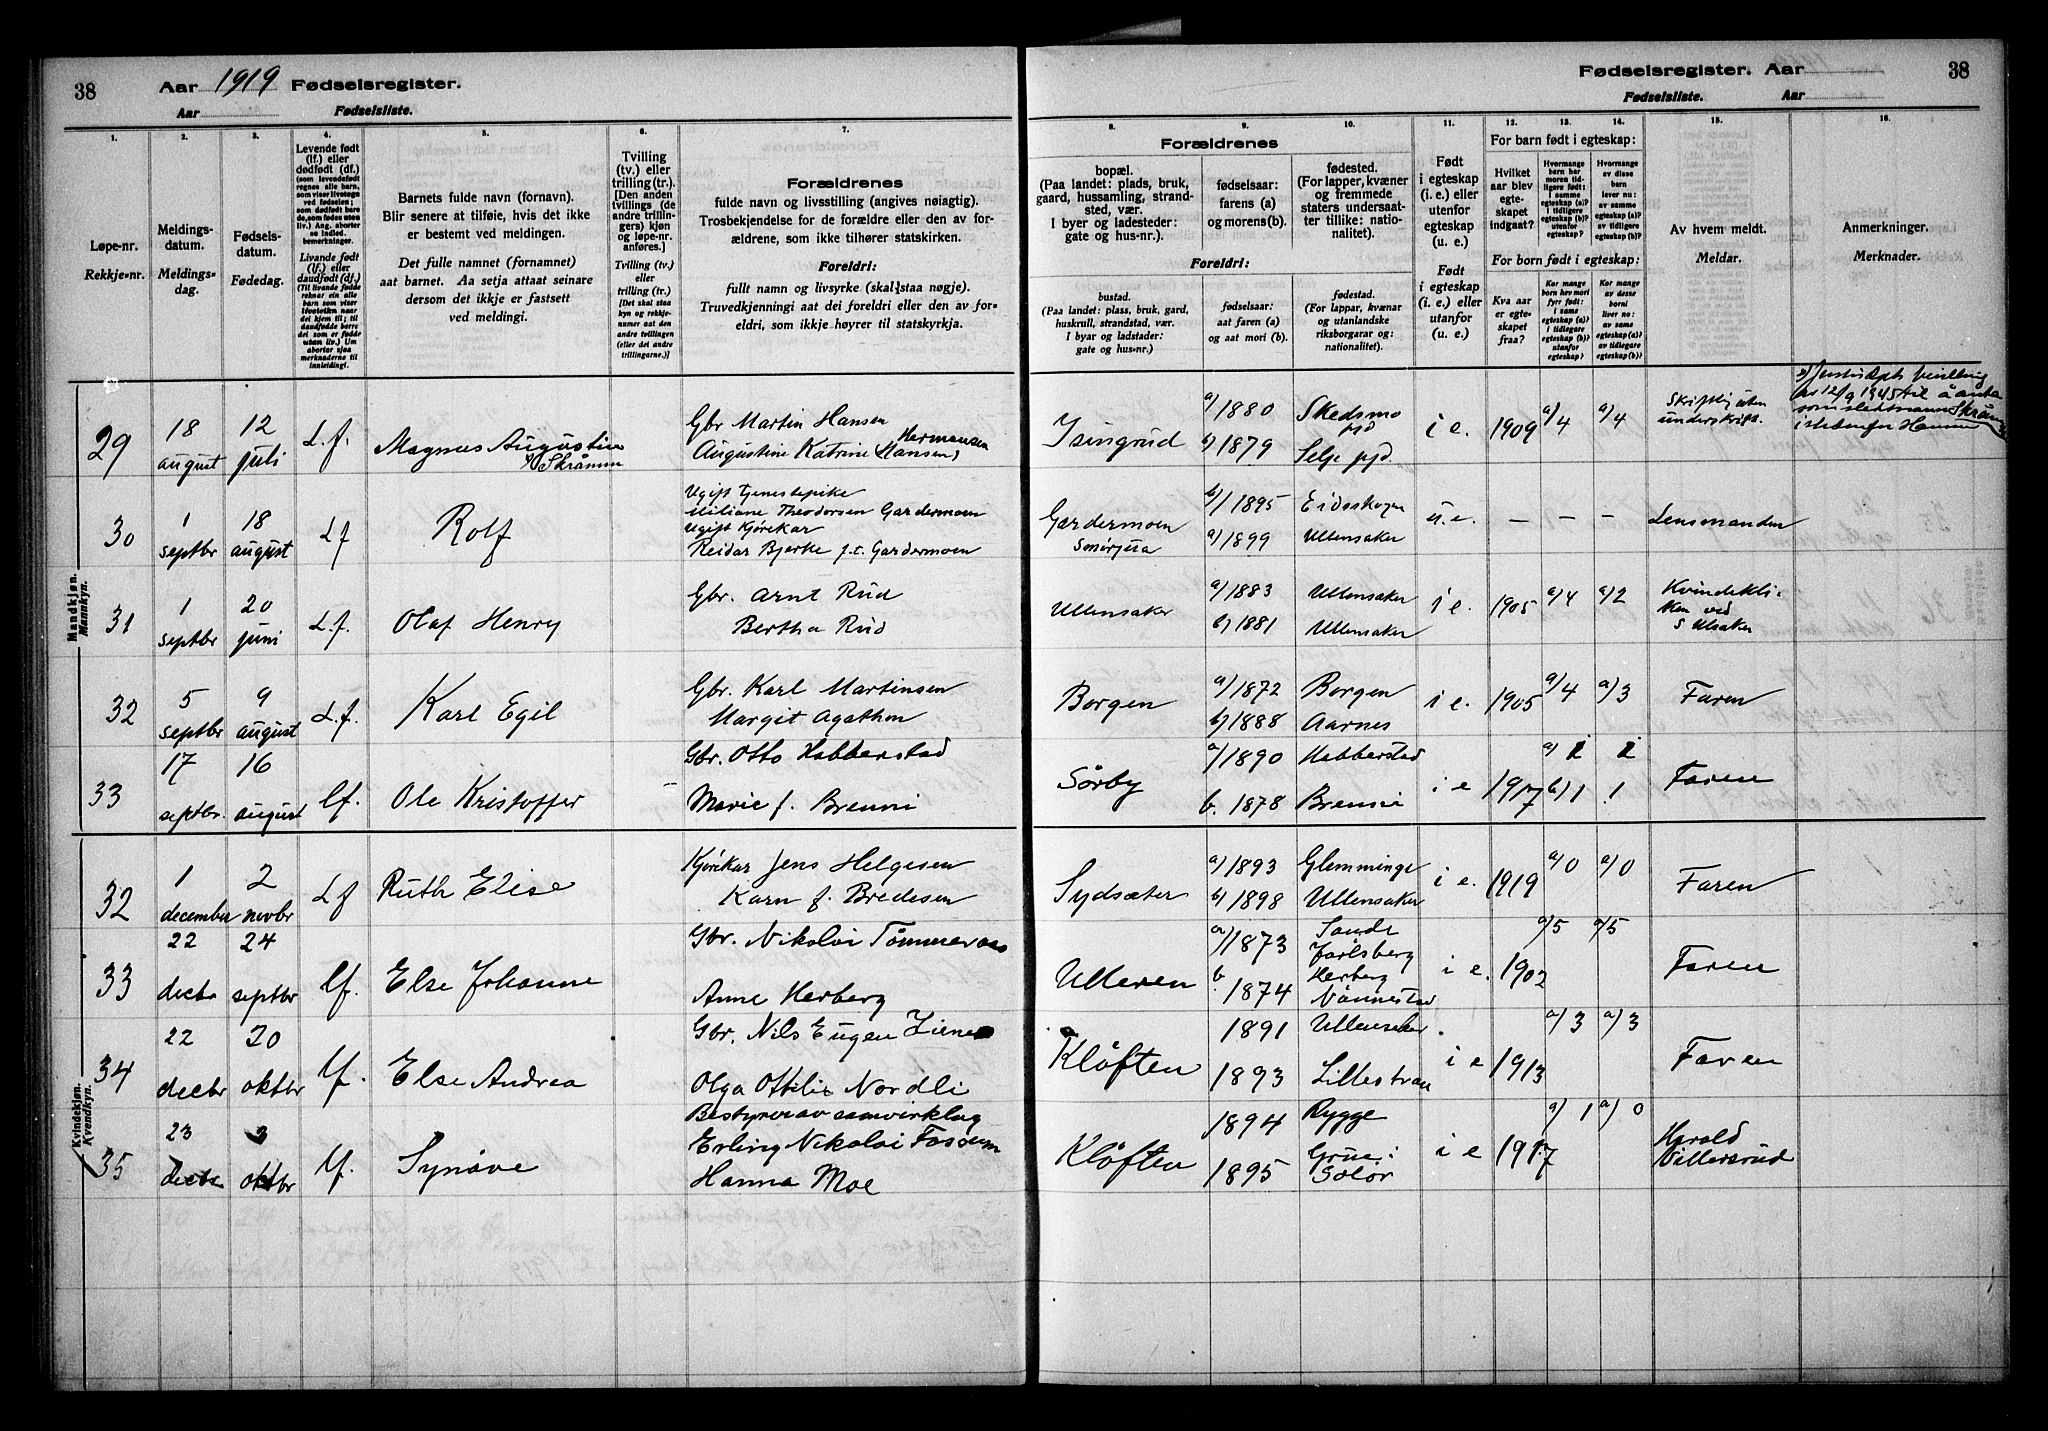 38 Aar 1919 Fødselsregister.
Aar Fødselsliste.
1. 2. 3. 4. 5. 6. 7.
Løpe-nr.
Rekkje-nr.
Meldings-
datum.
Meldings-
dag.
Fødsels-
datum.
Fødedag.
Levende født
(lf.) eller
dødfødt (df.)
(som levendefødt
regnes alle barn,
som viser livstegn
ved fødselen;
som dødfødt bare
de, som fødes uten
liv.) Ang. aborter
se indled.
bemerkninger.
Livande født
(lf.) eller
daudfødt (df.)
(Til livande fødde
reknar ein alle
born som viser
livsteikn naar
det kjem til; til
daudfødde berre
dei som er fødde
utan liv.) Um
abortar sjaa
merknaderne til
innleiding!
Barnets fulde navn (fornavn).
Blir senere at tilføie, hvis det ikke
er bestemt ved meldingen.
Det fulle namnet (fornamnet)
aat barnet. Aa setja attaat seinare
dersom det ikkje er fastsett
ved meldingi.
Tvilling
(tv.) eller
trilling (tr.).
[Den anden
tvillings (de
andre trillin-
gers) kjøn
og løpe-nr.
anføres.]
Tvilling (tv.)
eller
trilling (tr.)
[Det skal staa
kyn og rekkje-
numer aat den
andre tvillingen
(eller dei andre
trillingarne.)]
Forældrenes
fulde navn og livsstilling (angives nøiagtig).
Trosbekjendelse for de forældre eller den av for-
ældrene, som ikke tilhører statskirken.
Foreldri:
fullt namn og livsyrke (skal staa nøgje).
Truvedkjenningi aat dei foreldri eller den av for-
eldri, som ikkje høyrer til statskyrkja.
Mandkjøn.
Mannkyn.
29 18 august 12 juli L.f. Magnus Augustin
x) Skrämm
Gbr Martin Hansen
Augustine Katrine Hansen, Hermansen
30 1 septbr 18 august Lf Rolf
Ugift tjenestepike
Miliane Theodorsen Gardermoen
Ugift Kjørekar
Reidar Bjerke f.t. Gardermoen
31 1 septbr 20 juni L.f. Olaf Henry
Gbr. Arnt Rud
Bertha Rud
32 5 septbr 9 august L.f. Karl Egil
Gbr. Karl Martinsen
Margit Agathon
33 17 septbr. 16 august lf. Ole Kristoffer
Gbr. Otto Habberstad
Marie f. Brenni
Kvindekjøn.
Kvendkyn.
32 1 december 2 novbr Lf Ruth Elise
Kjørekar Jens Helgesen
Karn f. Bredesen
33 22 decbr 24 septbr lf. Else Johanne
Gbr. Nikolai Tømmeraas
Anne Herberg
34 22 decbr 20 oktbr lf. Else Andrea
Gbr. Nils Eugen
Olga Ottilie Nordli
35 23 decbr 3 oktbr lf. Synøve
Bestyrer av samvirkelag
Erling Nikolai Fossum
Hanna Moe
Fødselsregister. Aar 38
Fødselsliste. Aar
8. 9. 10. 11. 12. 13. 14. 15. 16.
Forældrenes
bopæl.
(Paa landet: plads, bruk,
gaard, hussamling, strand-
sted, vær.
I byer og ladesteder:
gate og hus-nr.).
fødselsaar:
farens (a)
og morens (b).
fødested.
(For lapper, kvæner
og fremmede
staters undersaat-
ter tillike: natio-
nalitet).
Foreldri:
bustad.
(Paa landet: plass, bruk, gard,
huskrull, strandstad, vær.
I byar og ladstader:
gate og hus-nr.)
fødselsaar:
aat faren (a)
og aat mori (b).
fødestad.
(For lappar, kvænar
og utanlandske
riksborgarar og:
nationalitet).
Født
i egteskap
(i. e.) eller
utenfor
egteskap
(u. e.)
Født
i egteskap
(i. e.) eller
utanfor
(u. e.)
For barn født i egteskap:
Hvilket
aar blev
egte-
skapet
indgaat?
Hvormange
barn har
moren tid-
ligere født:
i samme
egteskap (a)?
i tidligere
egteskap (b)?
utenfor
egteskap?
Hvormange
av disse
barn
lever nu:
av samme
egteskap (a)?
av tidligere
egteskap (b)?
For born født i egteskap:
Kva aar
er egte-
skapet
fraa?
Kor mange
born hev mori
fyrr født:
i same
egteskap (a)?
i tidlegare
egteskap (b)?
utanfor
egteskap?
Kor mange
av desse
borni
liver no:
av same
egteskap (a)?
av tidlegare
egteskap (b)?
Av hvem meldt.
Meldar.
Anmerkninger.
Merknader.
Isingrud a) 1880 Skedsmo pgd i e. 1909 a/4 a/4
b) 1879 Selje pgd.
Skriftlig uten
underskrift.
x) Justisdepts bevilling
av 12/9 1945 til å anta
som slektsnavn Skrämm
istedenfor Hansen
Gardermoen b) 1895 Eidsskogen u.e. — — — Lensmanden
a) 1899 Ullensaker
Ullensaker a/ 1883 Ullensaker i e. 1905 a/4 a/2
b) 1881 Ullensaker
Kvindekli-
ken ved
Borgen a/ 1872 Borgen i e. 1905 a/4 a/3 Faren
b) 1888 Aarnes
Sørby a/ 1890 Habberstad i e 1917 b) 1 1 Faren
b. 1878 Brenni
Sydsæter a) 1893 Glemminge i e. 1919 a) 0 a) 0 Faren
b) 1898 Ullensaker
Ulleren a/ 1873 Sande Jarlsberg i e. 1902 a/5 a/5 Faren
b. 1874 Herberg Nannestad
Kløften 1891 Ullensaker i e 1913 a/3 a/3 Faren
1893 Lillestrøm
Kløften 1894 Rygge i e 1917 a) 1 a) 0
1895 Grue i Solør
Harald
Villersrud